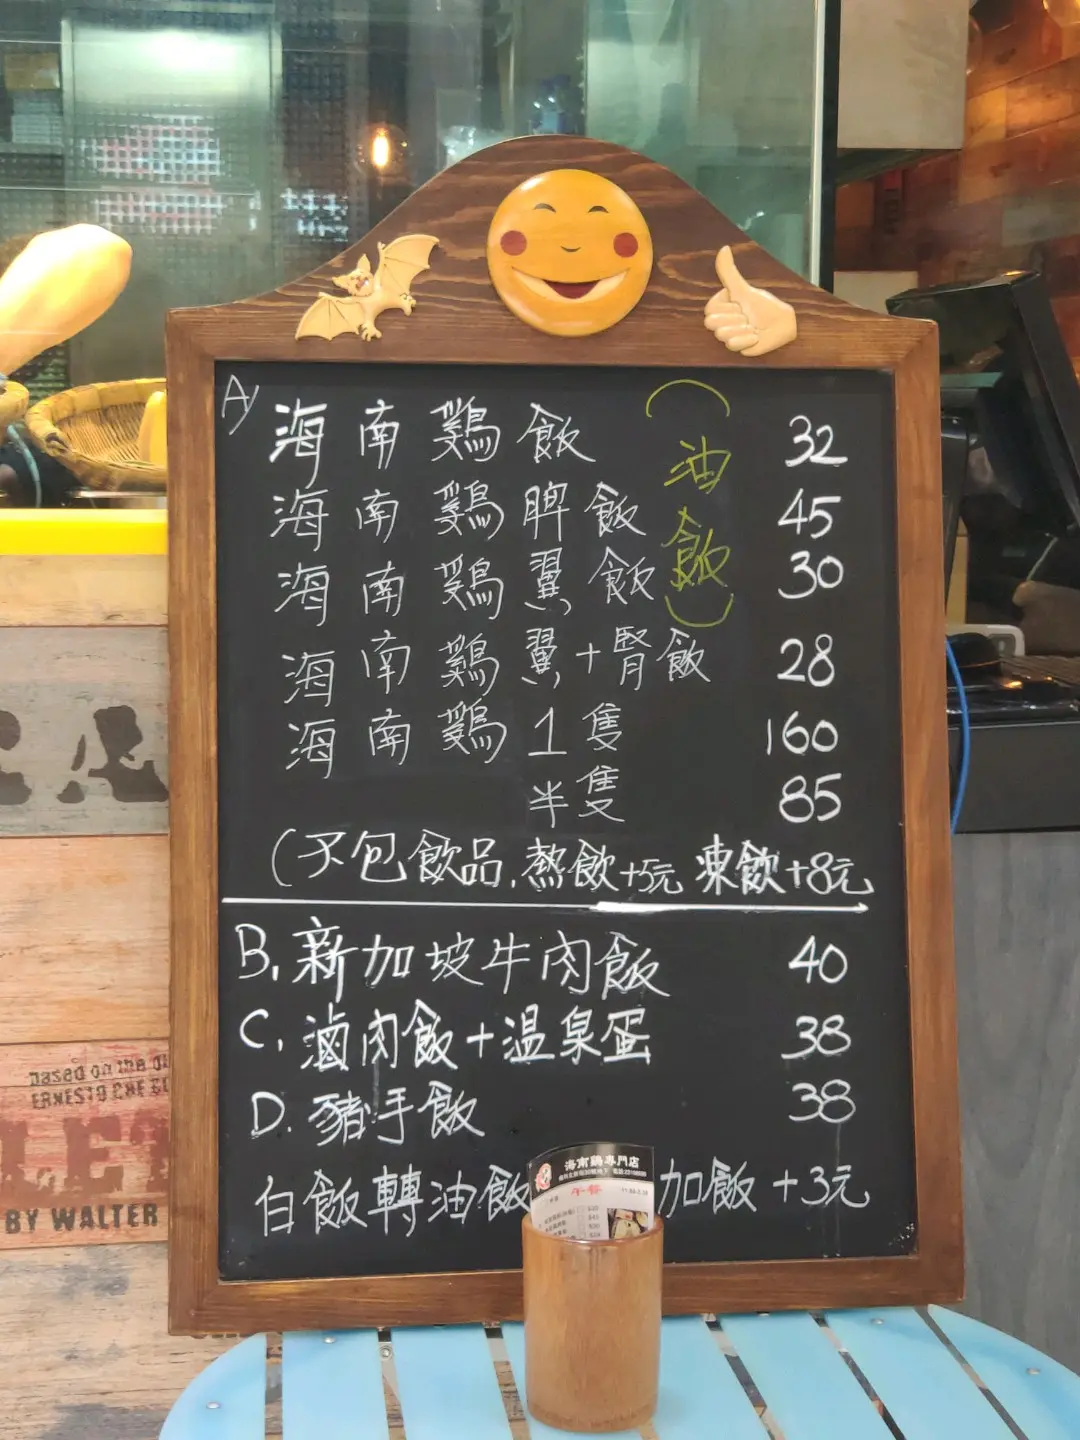 A)
海南鷄飯 (油飯) 32
海南鷄脾飯 45
海南鷄翼飯 30
海南鷄翼+腎飯 28
海南鷄1隻 160
半隻 85
(不包飲品,熱飲+5元 凍飲+8元
B.新加坡牛肉飯 40
C.滷肉飯+温泉蛋 38
D.豬手飯 38
白飯轉油飯 加飯 +3元
海南鷄專門店
午餐
BY WALTER